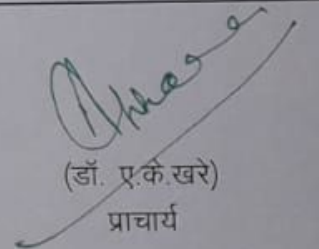 (डॉ. ए.के.खरे)
प्राचार्य